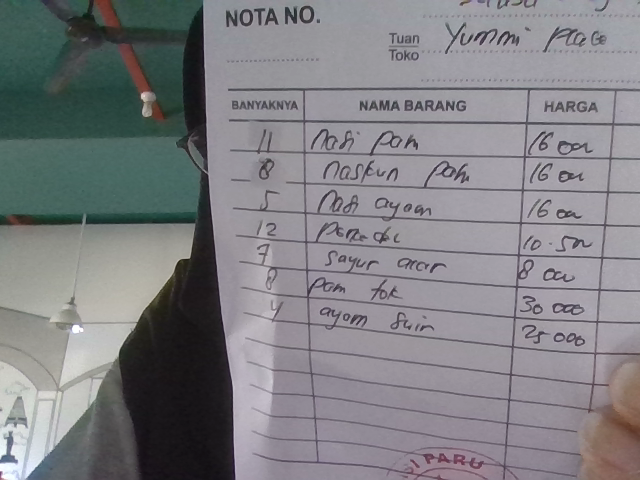 NOTA NO.
Tuan
Toko
Yummi Place
BANYAKNYA NAMA BARANG HARGA
11 nasi paru 16 000
8 naskun paru 16 000
5 nasi ayam 16 000
12 10.500
7 sayur acar 8 000
8 paru tok 30 000
4 ayam suir 25 000
DI PARU